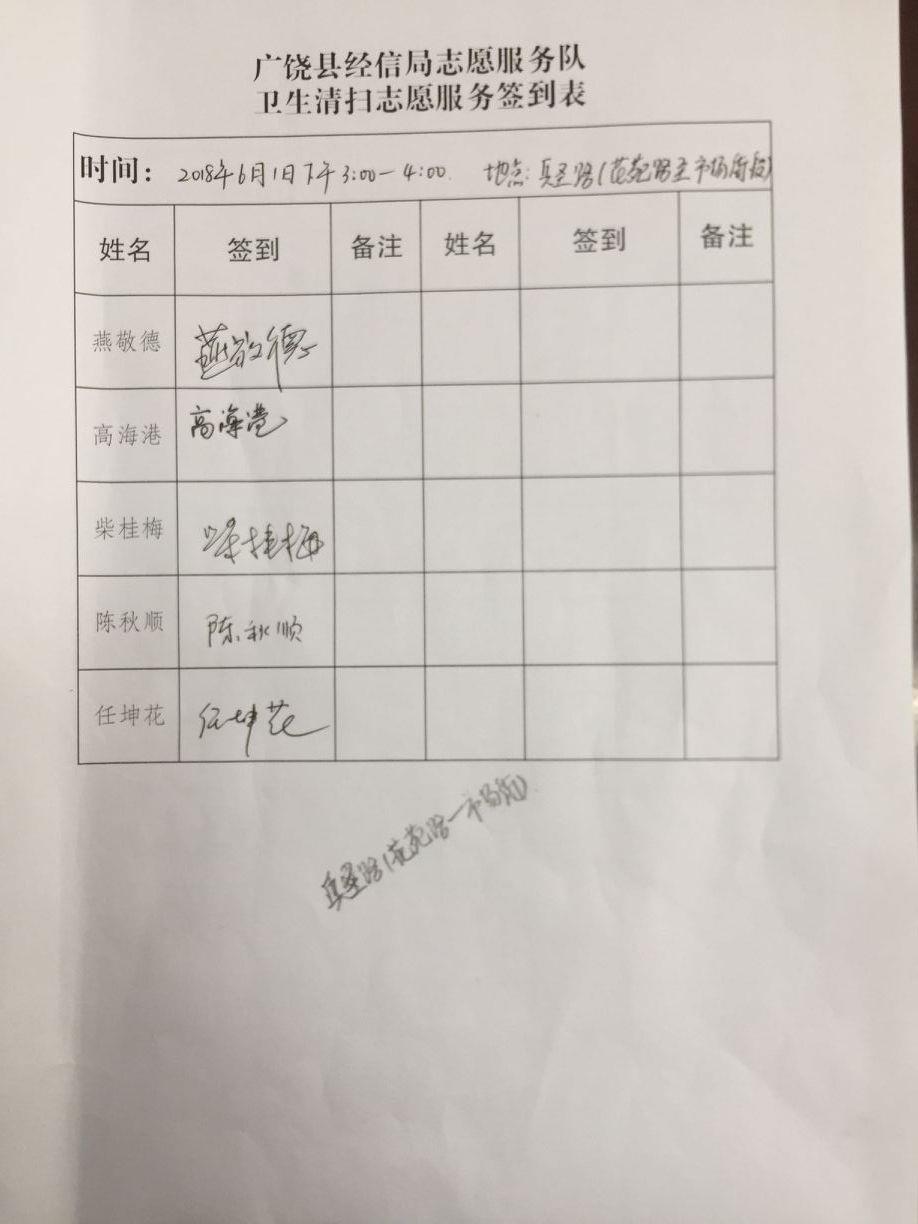 广饶县经信局志愿服务队
卫生清扫志愿服务签到表
时间： 2018年6月1日下午3:00-4:00. 地点: 兵圣路(花苑路至市场街段)
姓名 签到 备注 姓名 签到 备注
燕敬德 燕敬德
高海港 高海港
柴桂梅 柴桂梅
陈秋顺 陈秋顺
任坤花 任坤花
兵圣路(花苑路—市场街)